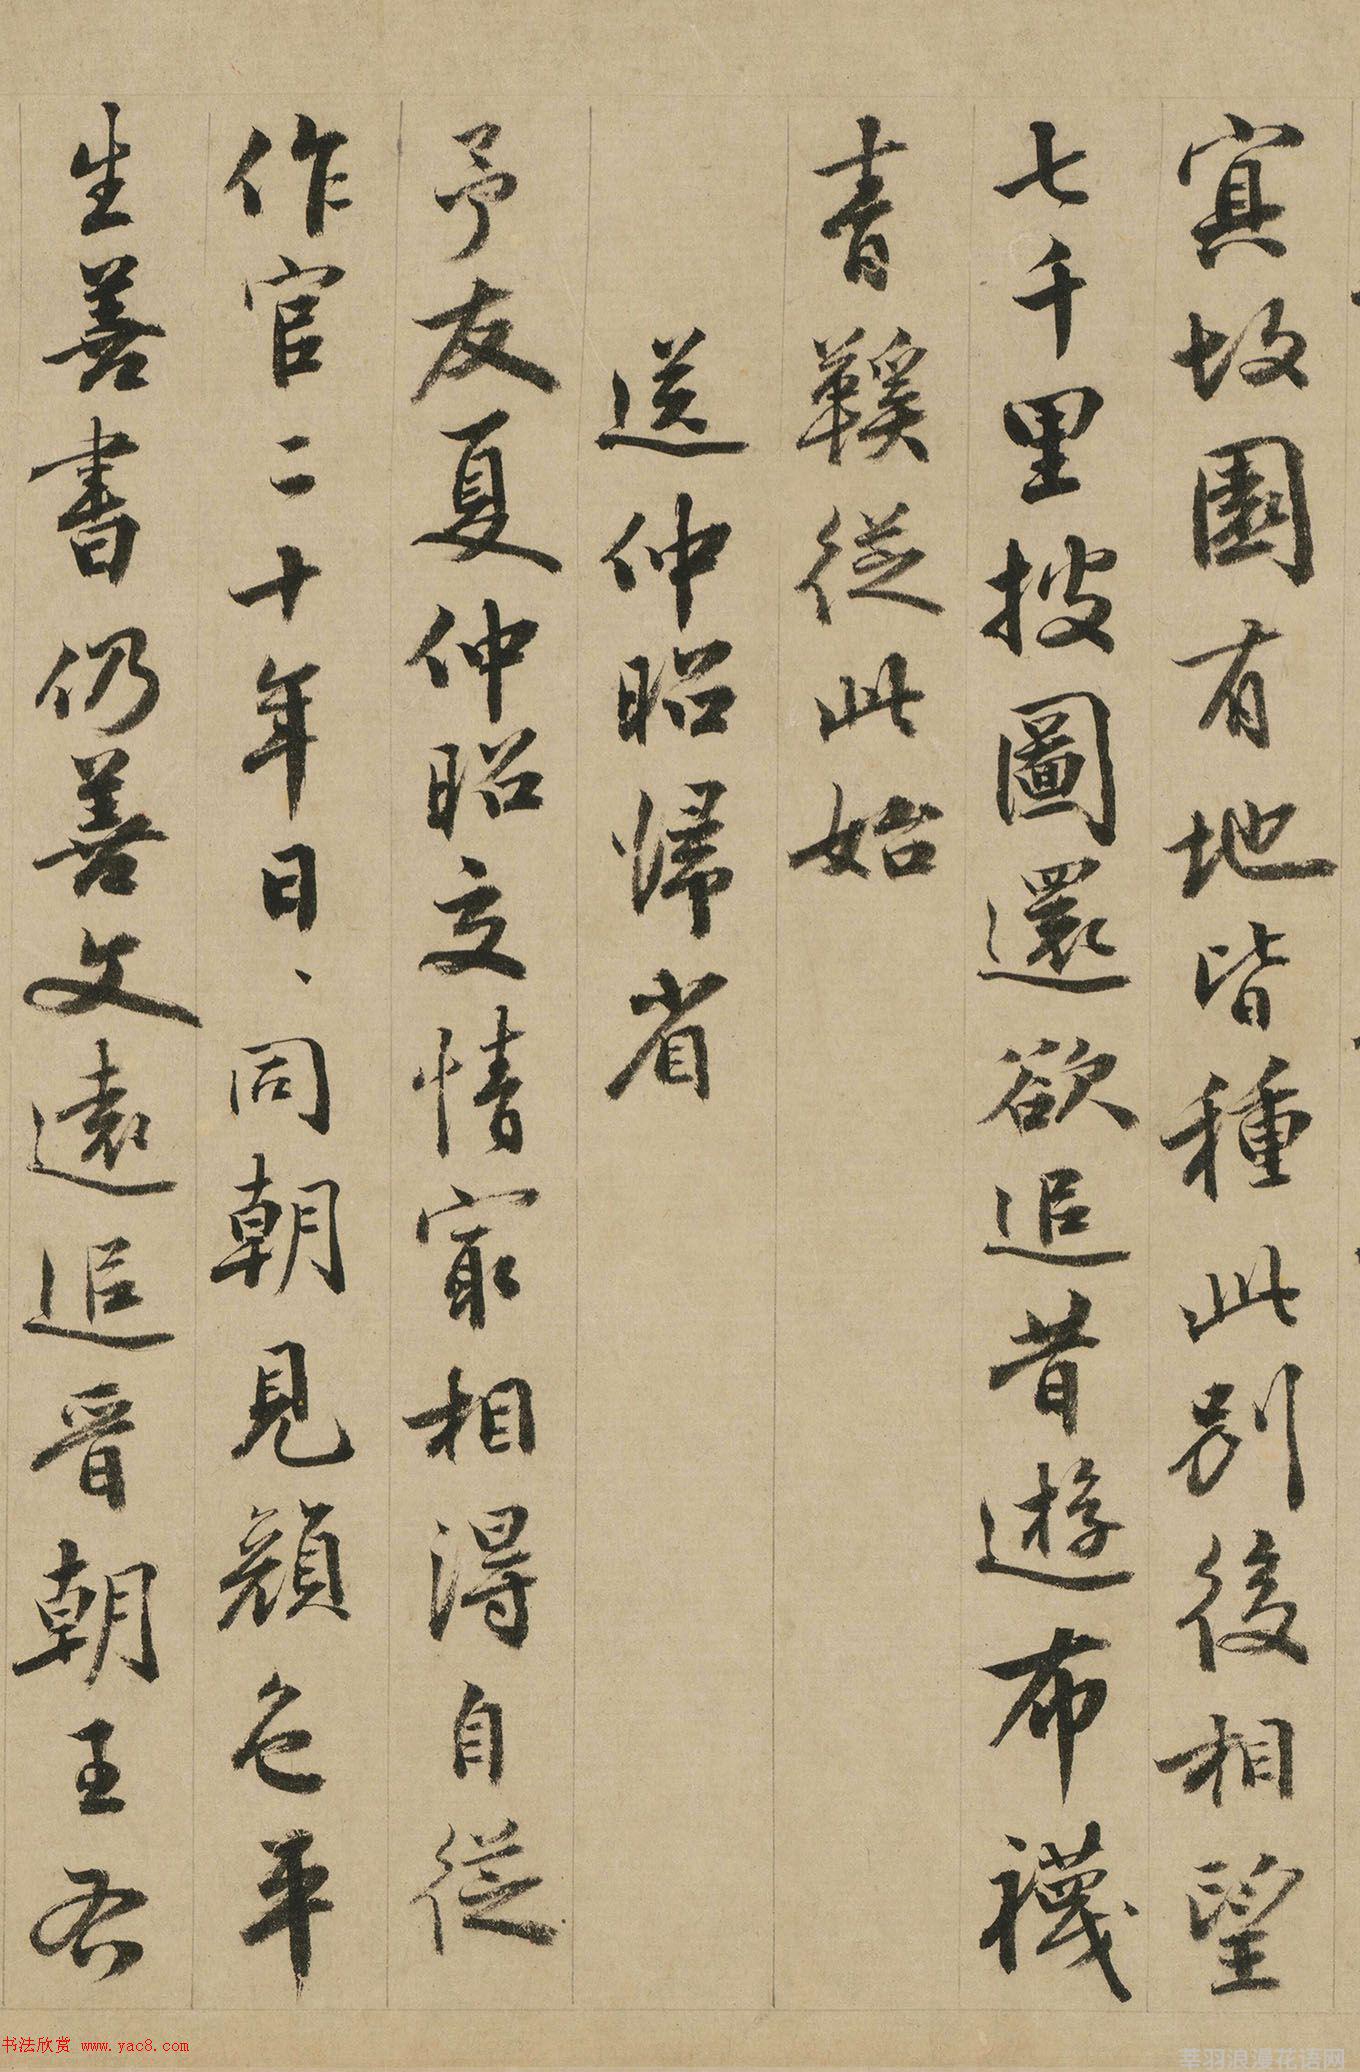 寘故園有地皆種此別後相望
七千里披圖還欲追昔遊布襪
青鞵從此始
送仲昭歸省
予友夏仲昭交情寂相得自從
作官二十年日、同朝見顏色平
生善書仍善文遠追晉朝王右
书法欣赏 www.yac8.com
莘羽浪漫花语网